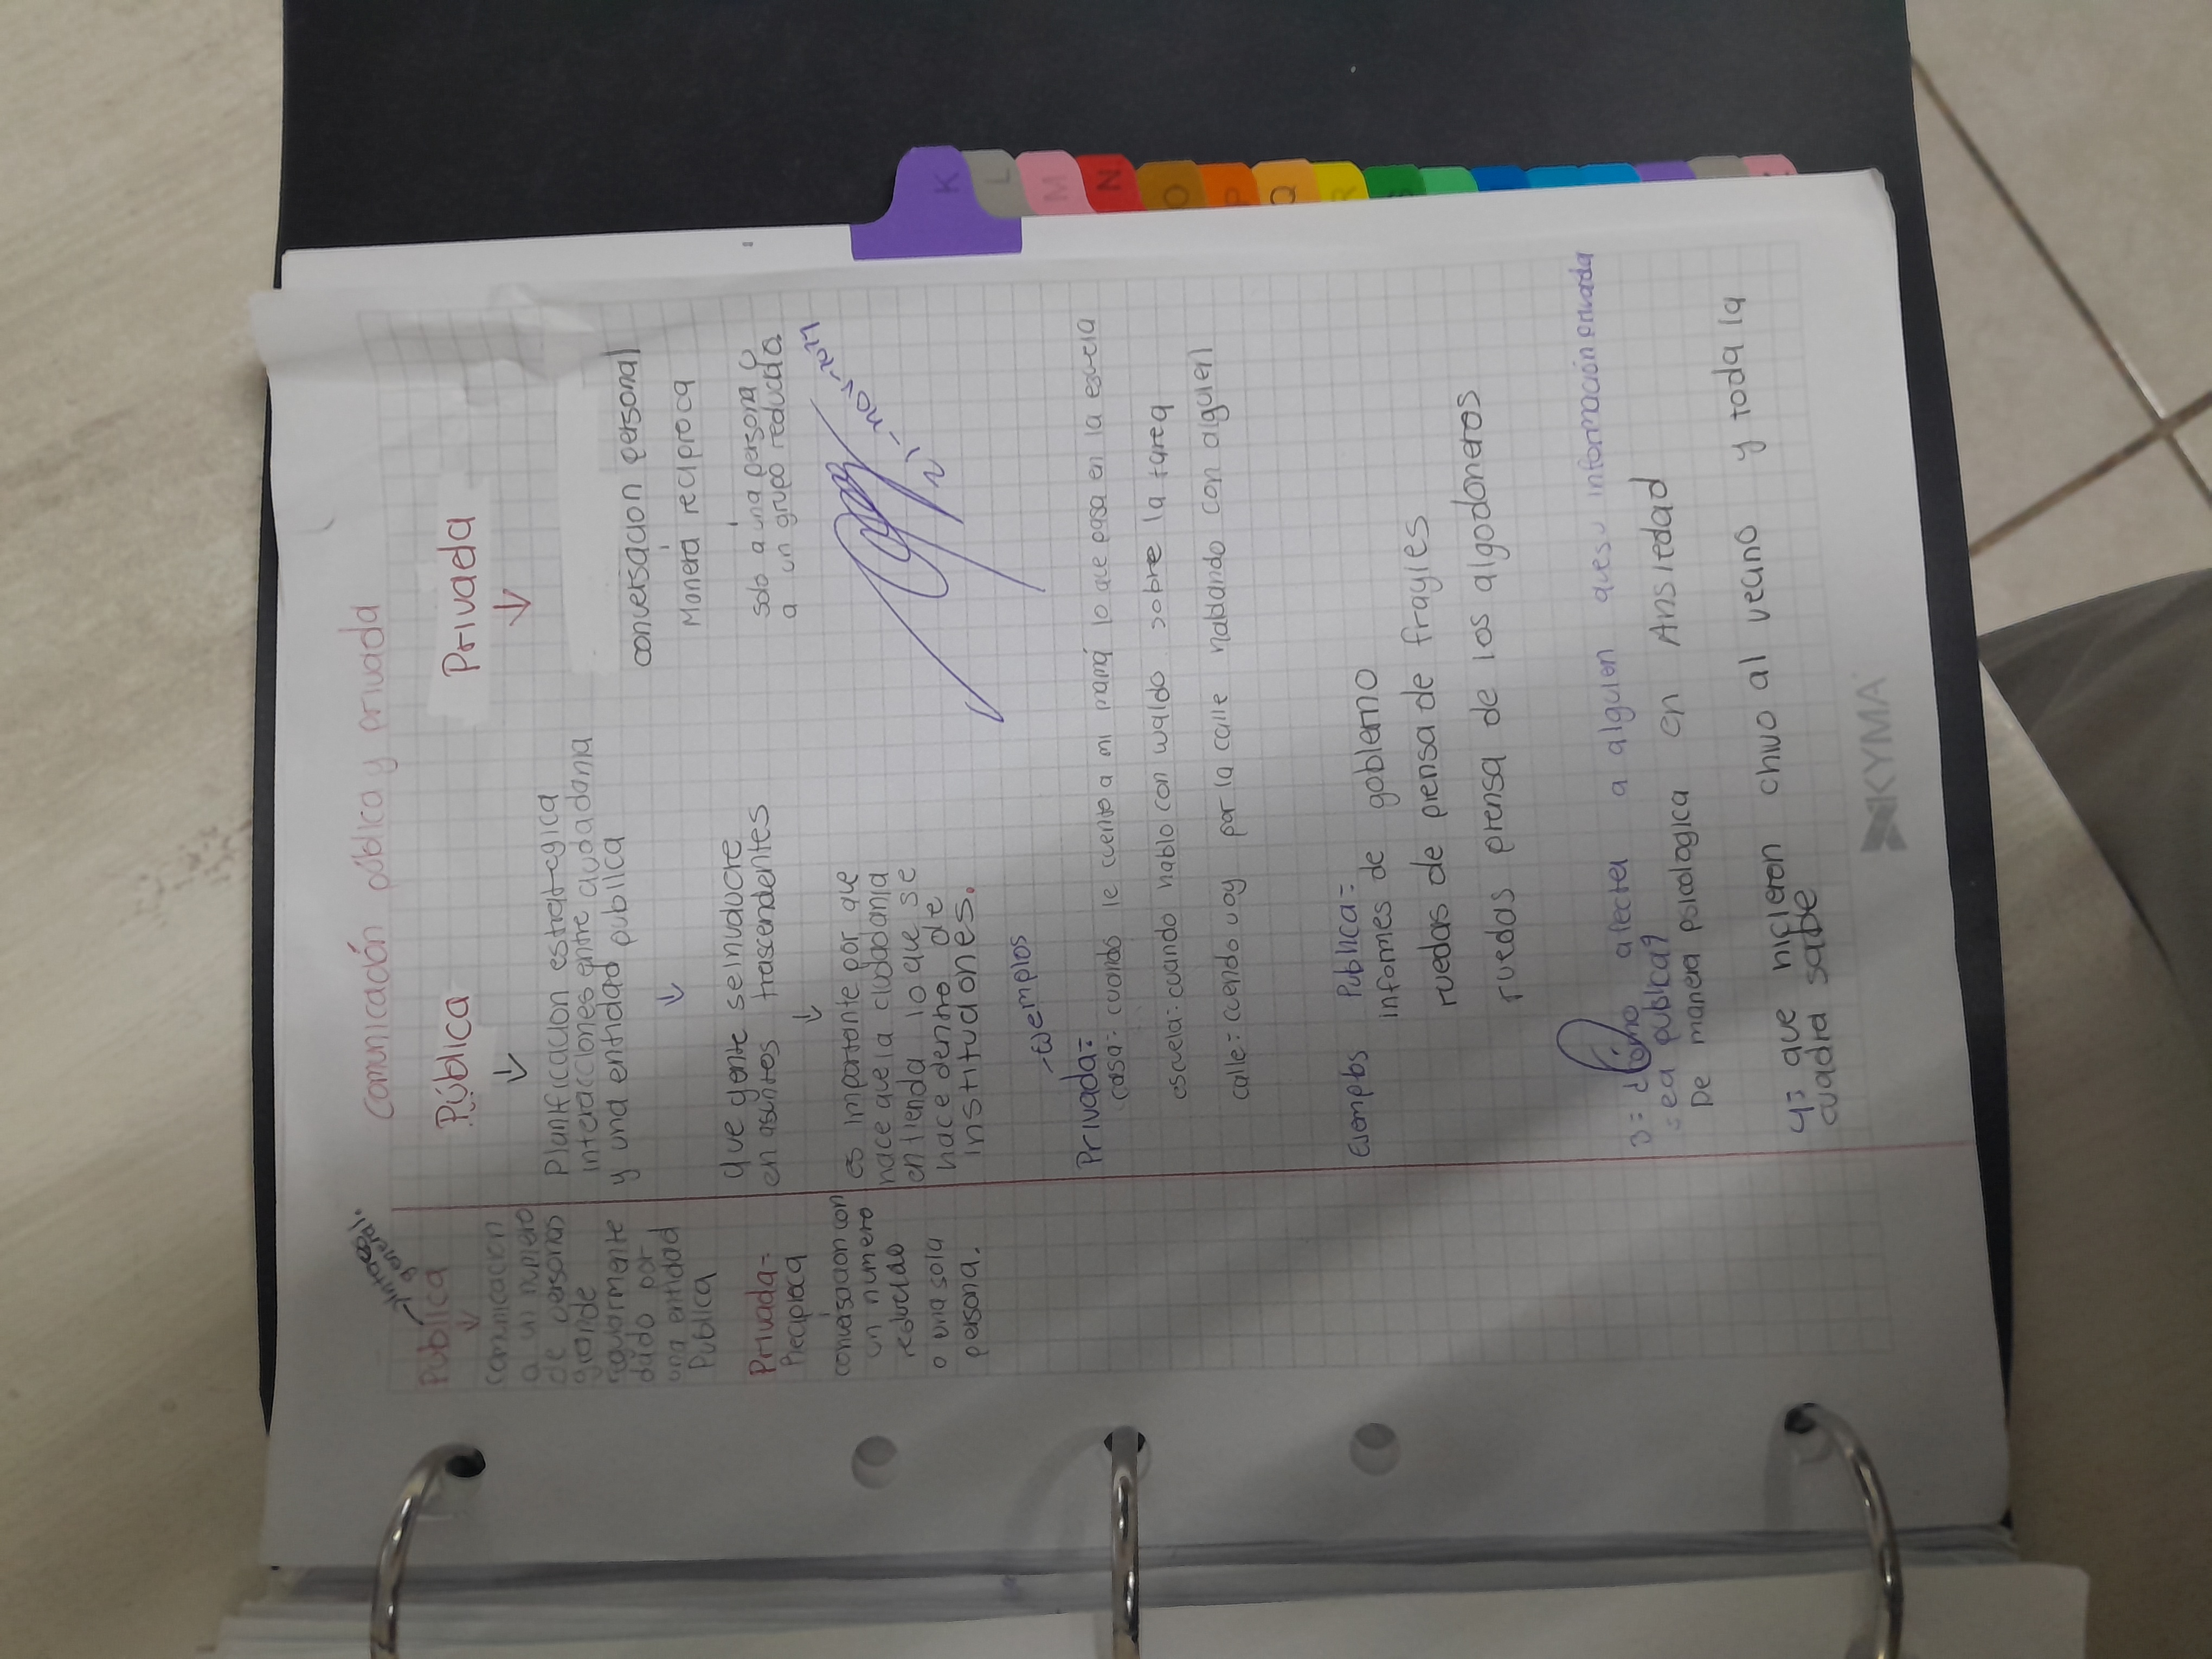 Comunicación pública y privada
Pública
↓
Comunicacion
a un numero
de personas
grande
regularmente
dado por
una entidad
Publica
Privada=
Reciproca
conversacion con
un numero
reducido
o una sola
persona.
Pública
↓
Planificacion estrategica
interacciones entre ciudadania
y una entidad publica
↓
que gente se involucre
en asuntos trascendentes
↓
es importante por que
hace que la ciudadania
entienda lo que se
hace dentro de
instituciones.
Privada
↓
conversacion personal
Manera reciproca
solo a una persona o
a un grupo reducido
-Ejemplos
Privada=
casa= cuando le cuento a mi mamá lo que pasa en la escuela
escuela= cuando hablo con waldo sobre la tarea
calle= cuendo voy por la calle hablando con alguien
Ejemplos Publica=
informes de gobierno
ruedas de prensa de frayles
ruedas prensa de los algodoneros
3= ¿Como afecter a alguien que su información privada
sea publica?
De manera psicologica en Ansiedad
4= que hicieron chivo al vecino y toda la
cuadra sabe
KYMA
K
L
M
N
O
P
Q
R
S